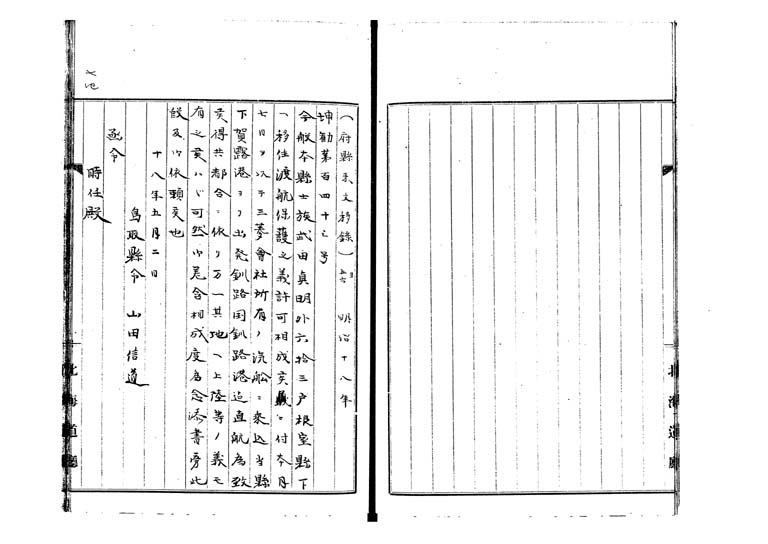 (府縣来文移録) 明治十八年
坤勧第百四十三号
今般本縣士族武田真明外六拾三戸根室縣下
へ移住渡航保護之義許可相成候義ニ付本月
七日ヲ以テ三菱會社所有ノ汽舩ニ乗込當縣
下賀露港ヨリ出発釧路国釧路港迄直航為致
候得共都合ニ依リ万一其地へ上陸等ノ義モ
有之候ハヾ可然御差含相成度為念添書旁此
段及御依頼候也
十八年五月二日
鳥取縣令 山田信道
函令
時任殿
北海道廳
北海道廳